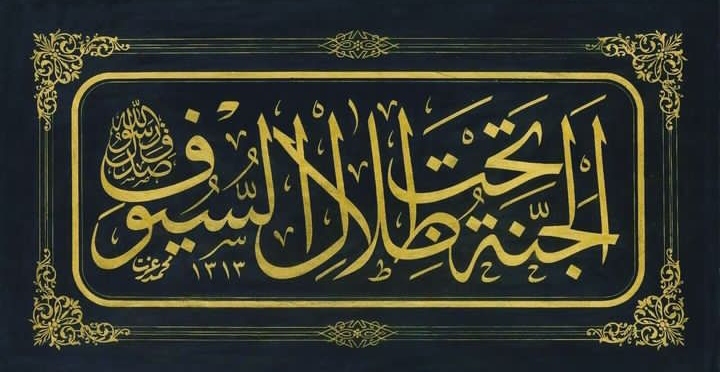 الجَنَّةُ تَحْتَ ظِلَالِ السُّيُوفِ
صدق رسول الله
محمد عزت
١٣١٣